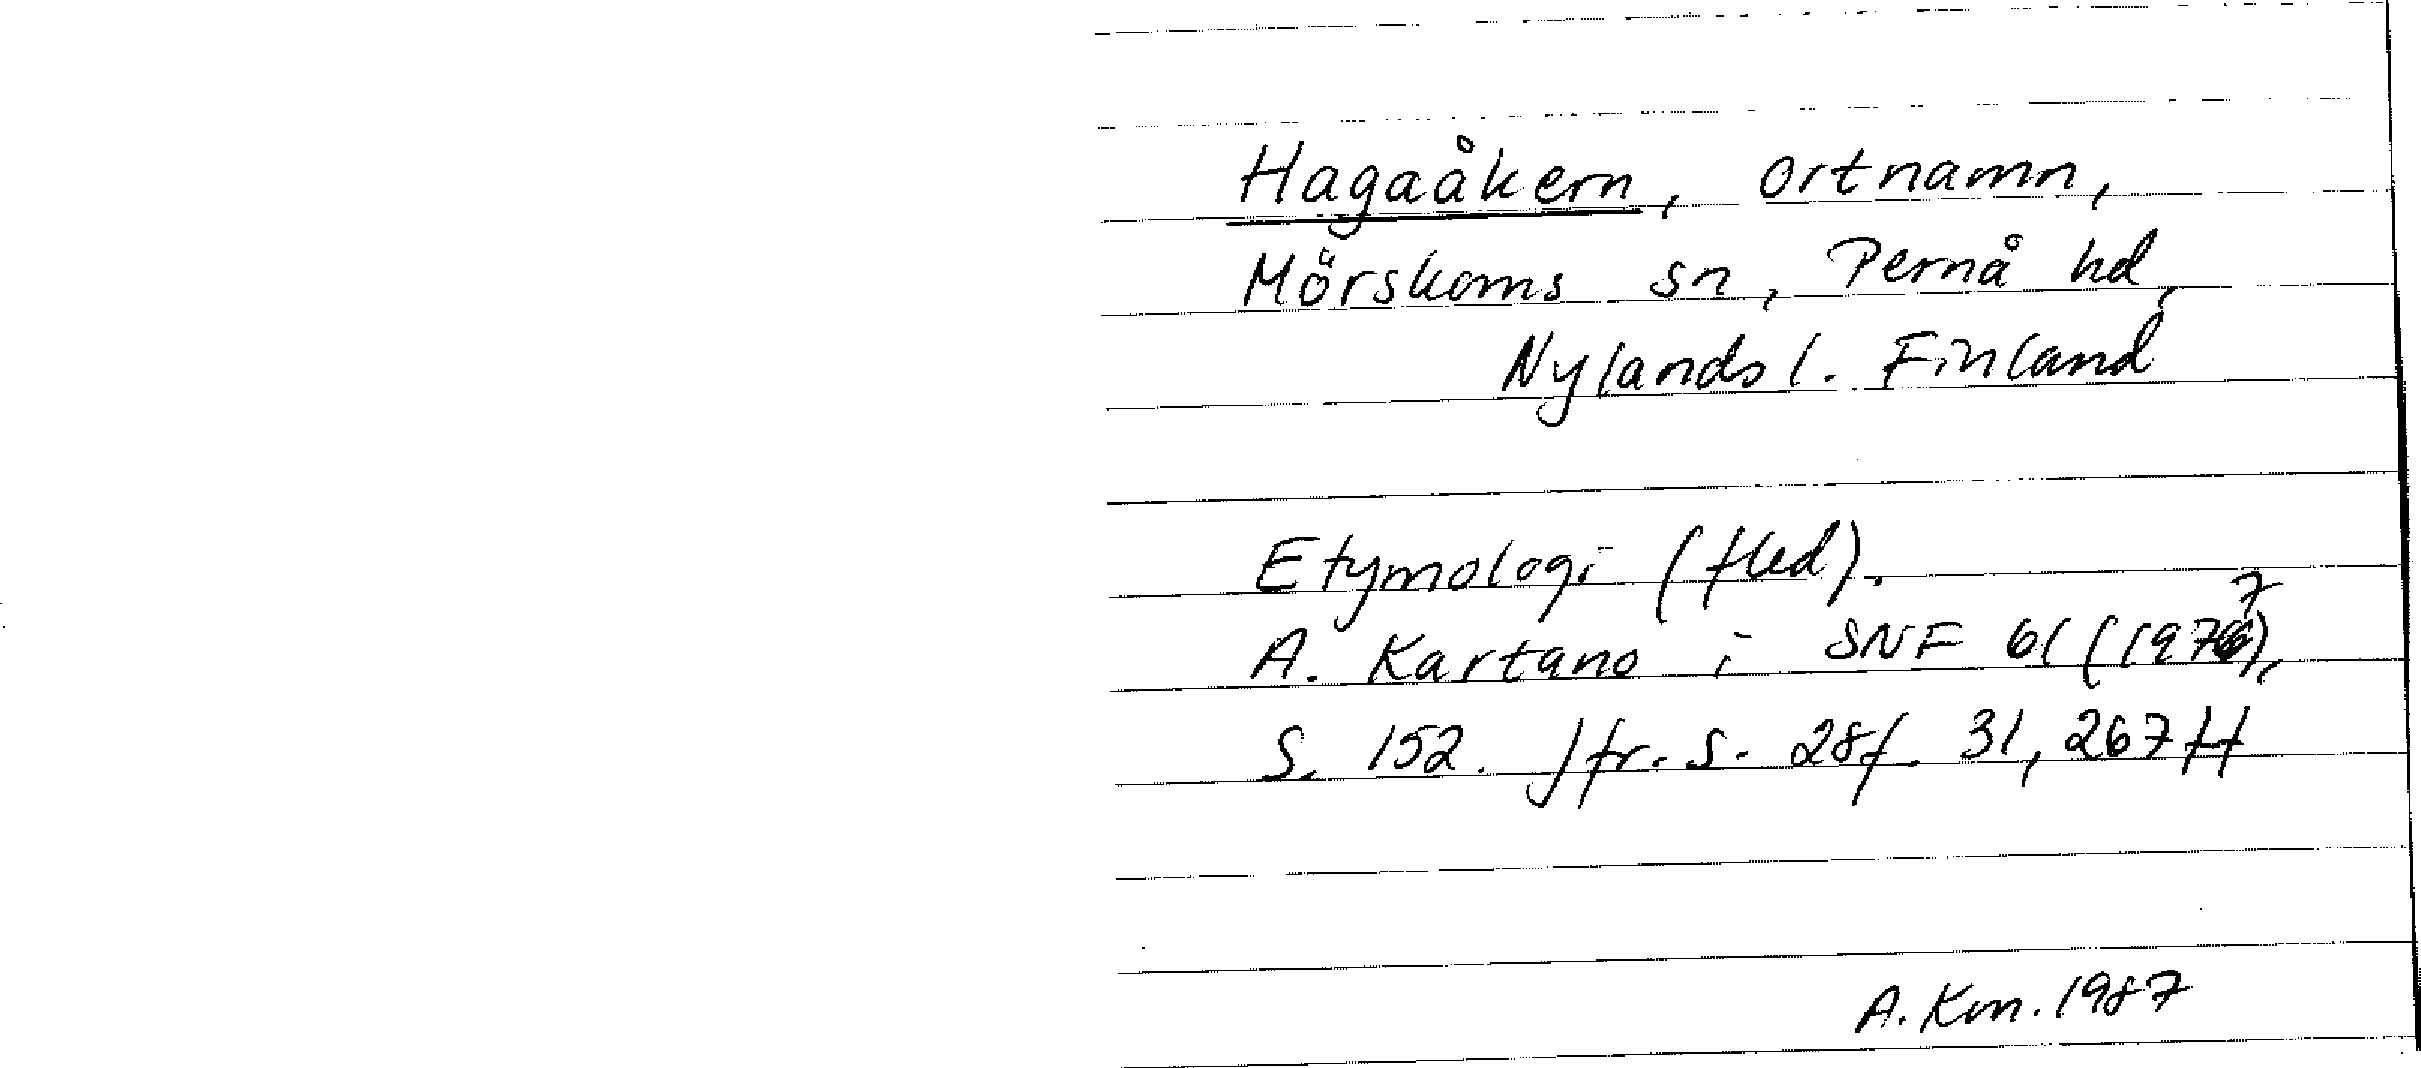 Hagaåkern, ortnamn,
Mörskoms sn, Pernå hd,
Nylands l. Finland
Etymologi (fled).
A. Kartano i SNF 61 (1977),
S. 152. Jfr. s. 28f. 31, 267 ff
A. Km. 1987